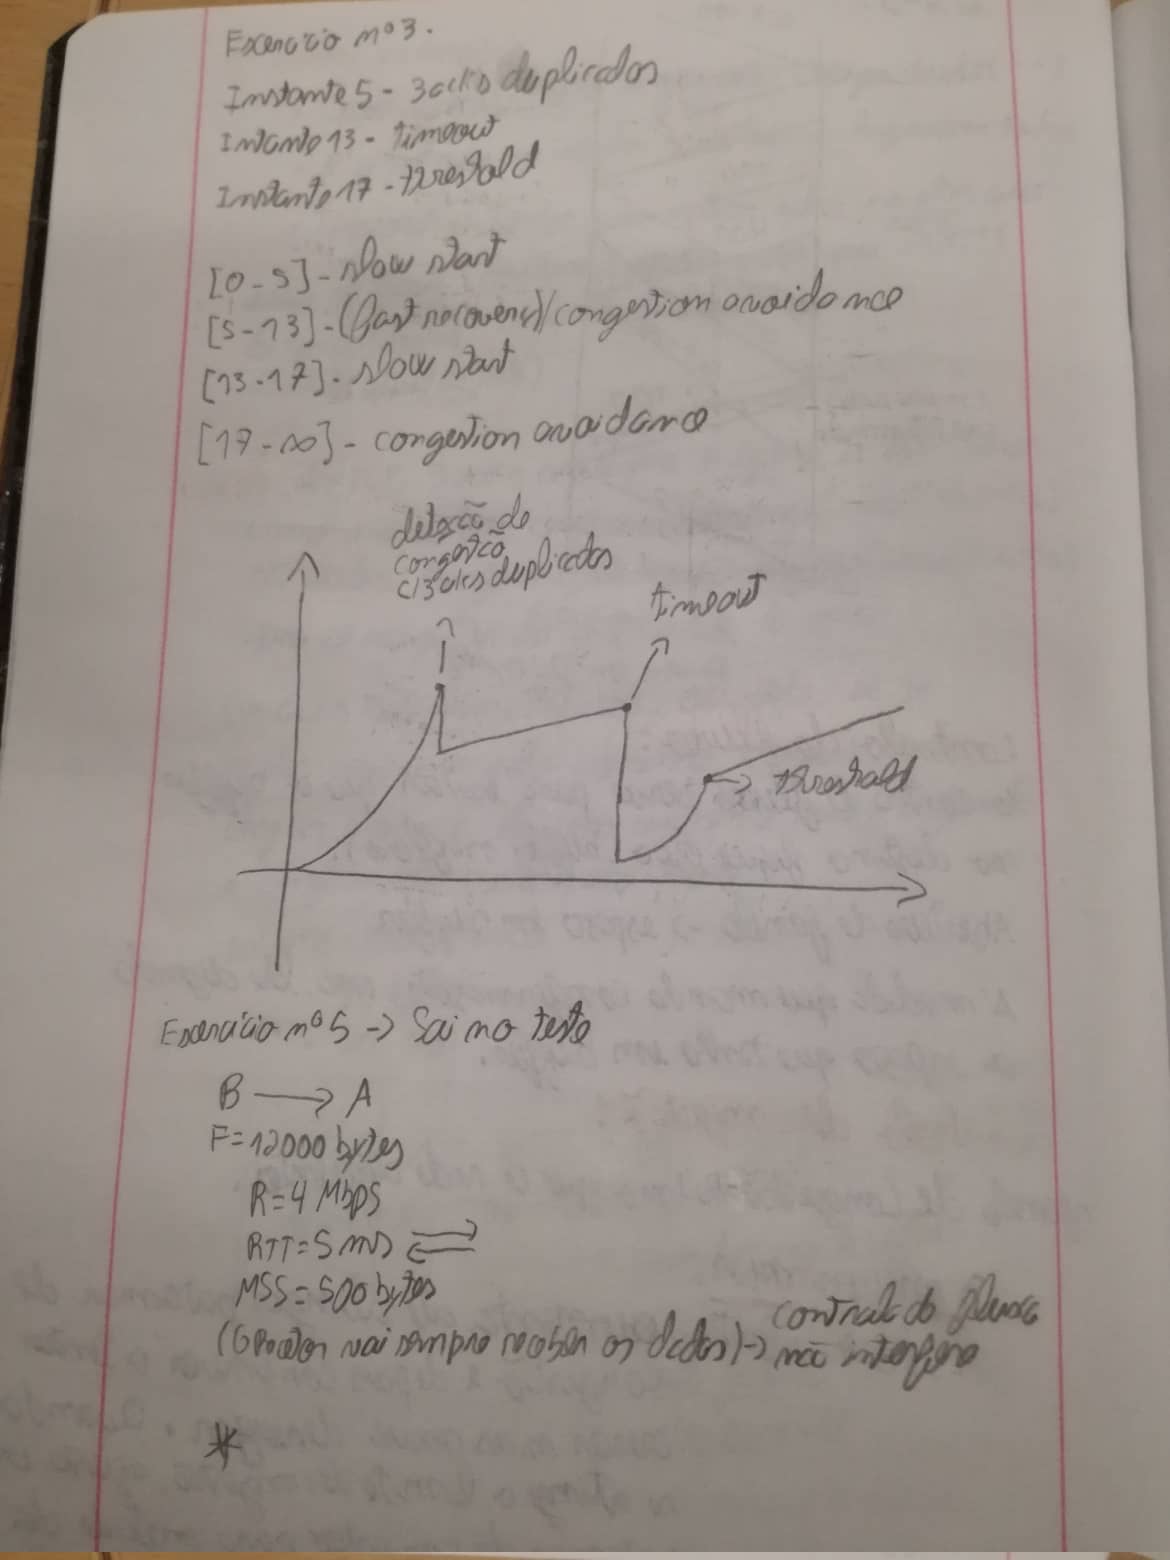 Exercício nº3.
Instante 5 - 3 acks duplicados
Intante 13 - timeout
Instante 17 - threshold
[0-5] - slow start
[5-13] - (fast recovery)/congestion avoidance
[13-17] - slow start
[17-∞] - congestion avoidance
deteção de
congestão
c/3 acks duplicados
timeout
threshold
Exercício nº5 -> Sai no teste
B -> A
F=12000 bytes
R=4 Mbps
RTT=5ms
MSS=500 bytes
controlo do fluxo
vai sempre receber os dados) -> não interfere
*